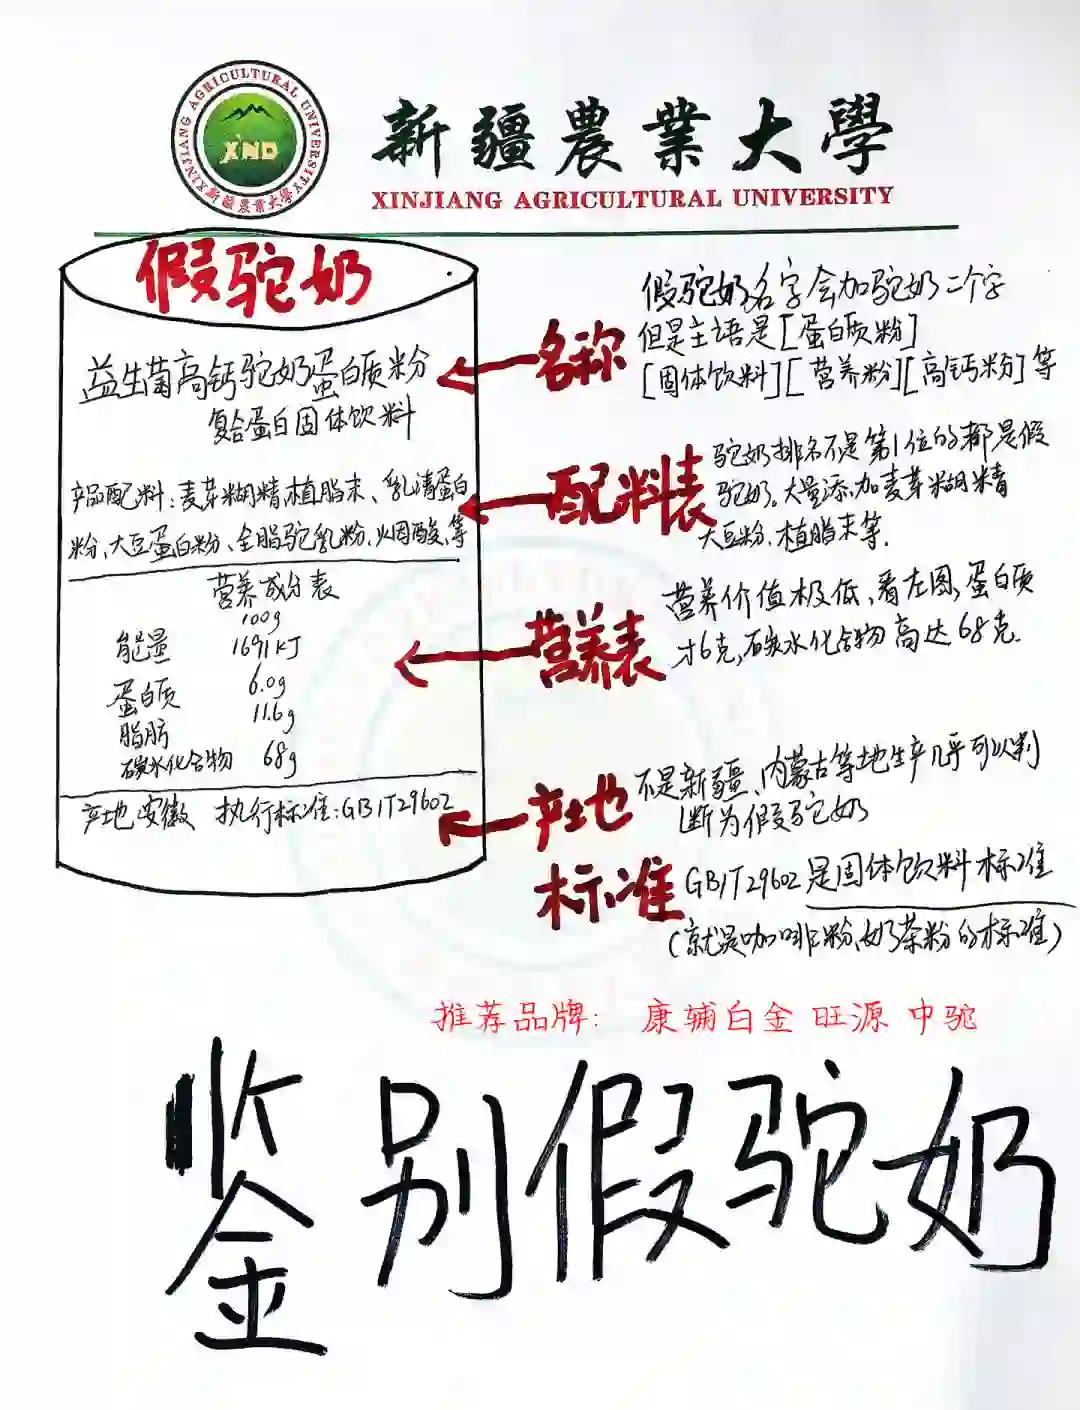 XINJIANG AGRICULTURAL UNIVERSITY
XND
新疆農業大學
新疆農業大學
XINJIANG AGRICULTURAL UNIVERSITY
假驼奶
益生菌高钙驼奶蛋白质粉
复合蛋白固体饮料
产品配料:麦芽糊精植脂末、乳清蛋白
粉、大豆蛋白粉、全脂驼乳粉、烟酸、等
营养成分表
100g
能量 1691KJ
蛋白质 6.0g
脂肪 11.6g
碳水化合物 68g
产地安徽 执行标准:GB/T29602
名称
假驼奶名字会加驼奶二个字
但是主语是[蛋白质粉]
[固体饮料][营养粉][高钙粉]等
配料表
驼奶排名不是第1位的都是假
驼奶。大量添加麦芽糊精
大豆粉、植脂末等.
营养表
营养价值极低、看左图,蛋白质
才6克,碳水化合物高达68克.
产地
不是新疆、内蒙古等地生产几乎可以判
断为假驼奶
标准
GB/T29602是固体饮料标准
(就是咖啡粉、奶茶粉的标准)
推荐品牌: 康辅白金 旺源 中驼
鉴别假驼奶